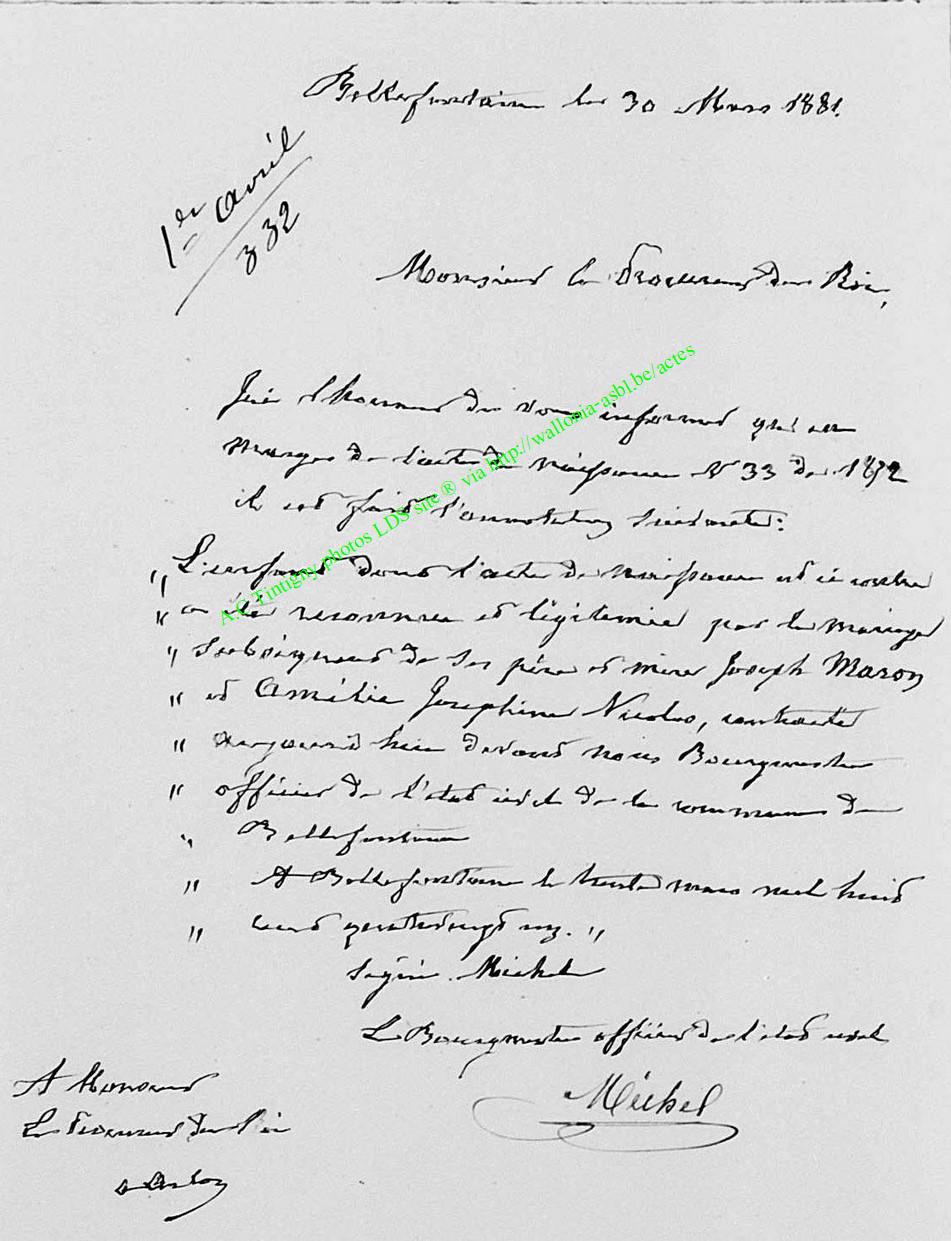 Bellefontaine le 30 Mars 1881.
1er avril
332
Monsieur le Procureur du Roi,
J'ai l'honneur de vous informer qu'en
marge de l'acte de naissance N° 33 de 1872
il est fait l'annotation suivante:
"L'enfant dont l'acte de naissance est ci contre
" a été reconnu et légitimé par le mariage
" subséquent de ses père et mère Joseph Maron
" et Amélie Josephine Nicolas, contracté
" aujourd'hui devant nous Bourgmestre
" officier de l'état civil de la commune de
" Bellefontaine
" A Bellefontaine le trente mars mil huit
" cent quatrevingt un. "
signé Michel
Le Bourgmestre officier de l'état civil
Michel
A Monsieur
Le Procureur du Roi
à Arlon
A.C Tintigny photos LDS site ® via http://wallonia-asbl.be/actes